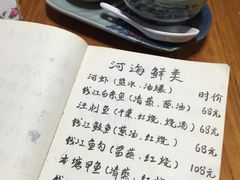 河海鲜类
河虾（盐水·油爆） 时价
钱江白条鱼（清蒸，葱油） 68元
汪刺鱼（干菜，红烧，烧汤） 68元
钱江鲅鱼（葱油，红烧） 68元
钱江鱼勾（葱蒸，红烧） 108元
本塘甲鱼（清蒸，红烧）